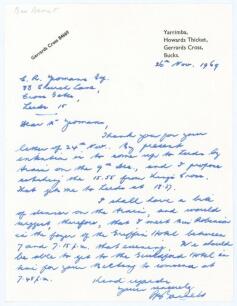 Gerrards Cross 84607
Yarrimba,
Howards Thicket,
Gerrards Cross,
Bucks.
26th Nov. 1969
C. R. Yeomans Esq.
Church Lane,
Cross Gates,
Leeds 15
Dear Mr Yeomans,
Thank you for your
letter of 24th Nov. My present
intention is to come up to Leeds by
train on the 9th Dec. and I propose
catching the 15.55 from King's Cross.
That gets me to Leeds at
I shall have a bite
of dinner on the train, and would
suggest, therefore, that I meet Mr Robinson
in the foyer of the Griffin Hotel between
7 and 7.15 p.m. that evening. We should
be able to get to the Guildford Hotel in
time for your meeting to commence at
7.45 p.m.
Kind regards,
Yours sincerely,